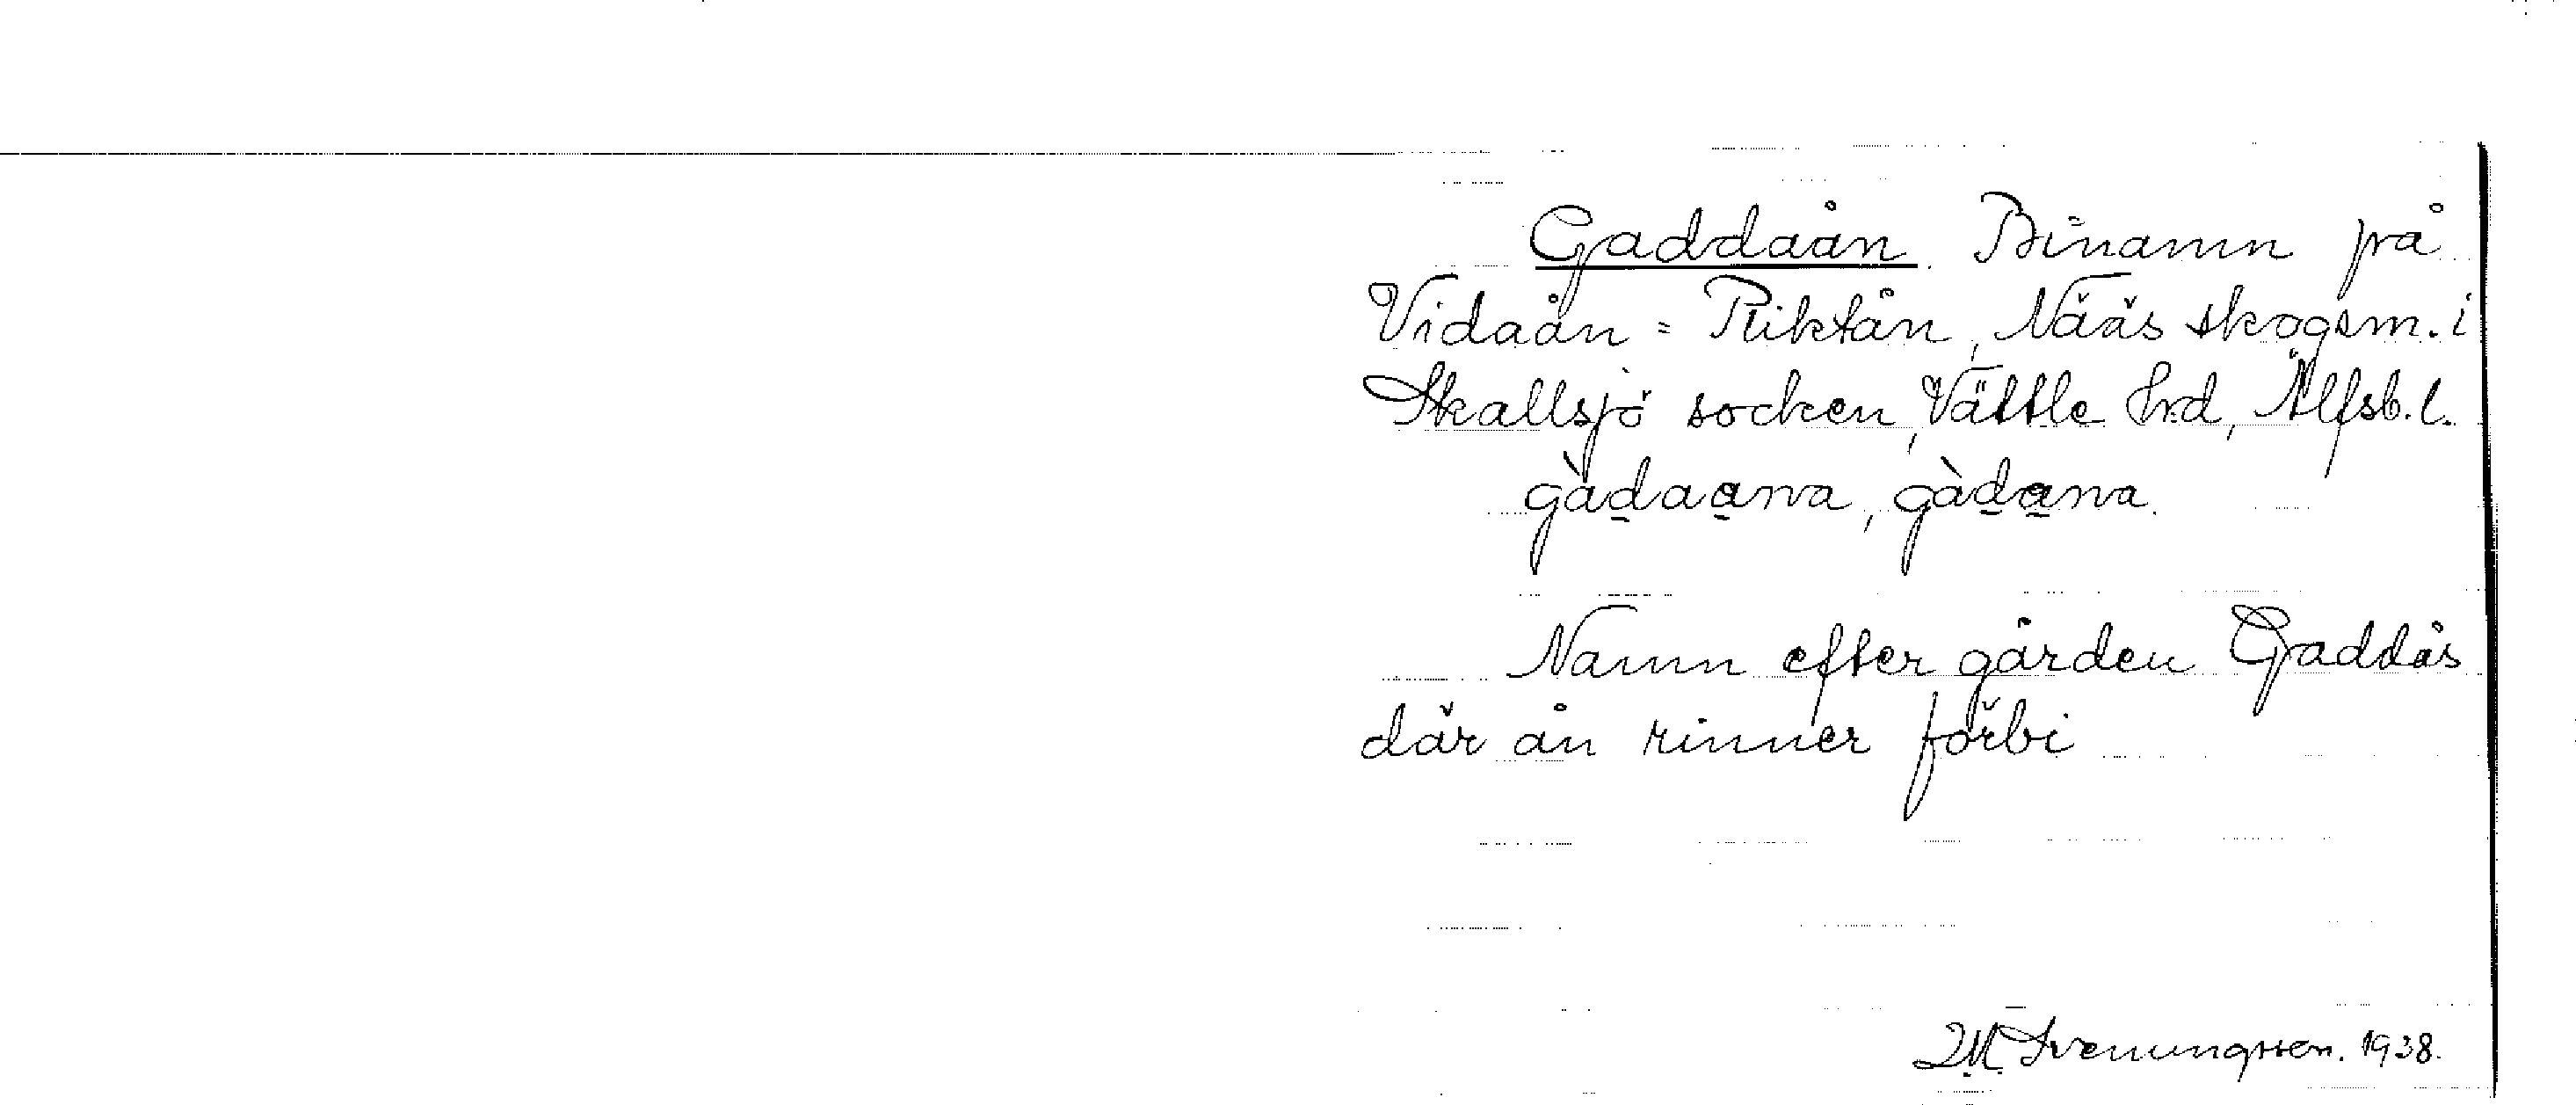 Gaddaån. Binamn på
Vidaån = Riktån, Nääs skogsm. i
Skallsjö socken, Vättle hrd, Älfsb. l.
gàdaana, gàdana.
Namn efter gården Gaddås
där ån rinner förbi
Svenungsson. 1938.